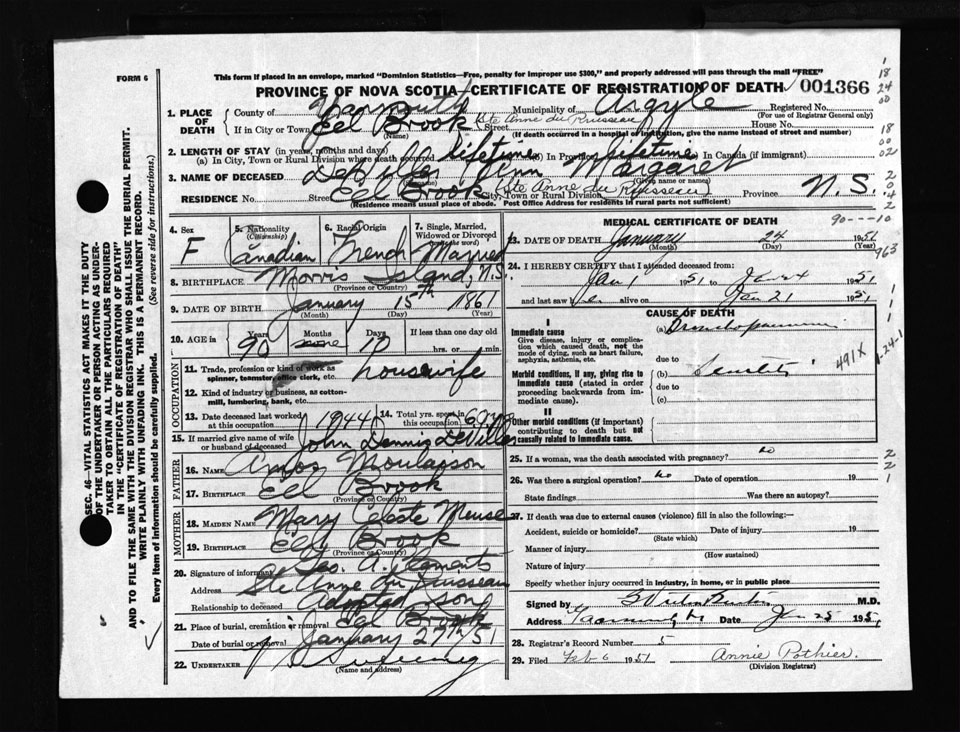 FORM 6
This form if placed in an envelope, marked "Dominion Statistics—Free, penalty for improper use $300," and properly addressed will pass through the mail "FREE"
PROVINCE OF NOVA SCOTIA—CERTIFICATE OF REGISTRATION OF DEATH 001366
1. PLACE OF DEATH County of Yarmouth Municipality of Argyle Registered No.
(For use of Registrar General only)
If in City or Town Eel Brook Street Ste Anne du Ruisseau House No.
(Name) (If death occurred in a hospital or institution, give the name instead of street and number)
2. LENGTH OF STAY (in years, months and days)
(a) In City, Town or Rural Division where death occurred lifetime In Province lifetime In Canada (if immigrant)
3. NAME OF DECEASED DeVilles Ann Margaret
(Given name or names)
RESIDENCE No. Street Eel Brook (Ste Anne du Ruisseau) City, Town or Rural Division Province N.S.
(Residence means usual place of abode. Post Office Address for residents in rural parts not sufficient)
4. Sex F
5. Nationality (Citizenship) Canadian
6. Racial Origin French
7. Single, Married, Widowed or Divorced Married
8. BIRTHPLACE Morris Island, N.S.
(Province or Country)
9. DATE OF BIRTH January 15th 1861
(Month) (Day) (Year)
10. AGE in Years Months Days If less than one day old
90 none 10 hrs. or min.
OCCUPATION
11. Trade, profession or kind of work as spinner, teamster, office clerk, etc. housewife
12. Kind of industry or business, as cotton-mill, lumbering, bank, etc.
13. Date deceased last worked at this occupation 1944
14. Total yrs. spent in this occupation
15. If married give name of wife or husband of deceased John Dennis DeVilles
FATHER
16. NAME Amos Moulaison
17. BIRTHPLACE Eel Brook
(Province or Country)
MOTHER
18. MAIDEN NAME Mary Celeste Meuse
19. BIRTHPLACE Eel Brook
(Province or Country)
20. Signature of informant Geo. A. Clements
Address Ste Anne du Ruisseau
Relationship to deceased Adopted son
21. Place of burial, cremation or removal Eel Brook
Date of burial or removal January 27th/51
22. UNDERTAKER
(Name and address)
MEDICAL CERTIFICATE OF DEATH
90---10
23. DATE OF DEATH January 24 1951
(Month) (Day) (Year)
24. I HEREBY CERTIFY that I attended deceased from:
Jan 1 1951 to 1951
and last saw her alive on Jan 21 1951
CAUSE OF DEATH
I
Immediate cause (a) Bronchopneumonia
Give disease, injury or complication which caused death, not the mode of dying, such as heart failure, asphyxia, asthenia, etc.
due to
Morbid conditions, if any, giving rise to immediate cause (stated in order proceeding backwards from immediate cause). (b)
due to
(c)
491X
II
Other morbid conditions (if important) contributing to death but not causally related to immediate cause.
25. If a woman, was the death associated with pregnancy? no
26. Was there a surgical operation? no Date of operation 19
State findings Was there an autopsy?
27. If death was due to external causes (violence) fill in also the following:—
Accident, suicide or homicide? Date of injury 19
(State which)
Manner of injury
(How sustained)
Nature of injury
Specify whether injury occurred in industry, in home, or in public place
Signed by M.D.
Address Date Jan 25 1951
28. Registrar's Record Number 5
29. Filed Feb 6 1951 Annie Pothier.
(Division Registrar)
SEC. 46—VITAL STATISTICS ACT MAKES IT THE DUTY
OF THE UNDERTAKER OR PERSON ACTING AS UNDER-
TAKER TO OBTAIN ALL THE PARTICULARS REQUIRED
IN THE "CERTIFICATE OF REGISTRATION OF DEATH"
AND TO FILE THE SAME WITH THE DIVISION REGISTRAR WHO SHALL ISSUE THE BURIAL PERMIT.
WRITE PLAINLY WITH UNFADING INK. THIS IS A PERMANENT RECORD.
Every item of information should be carefully supplied. (See reverse side for instructions.)